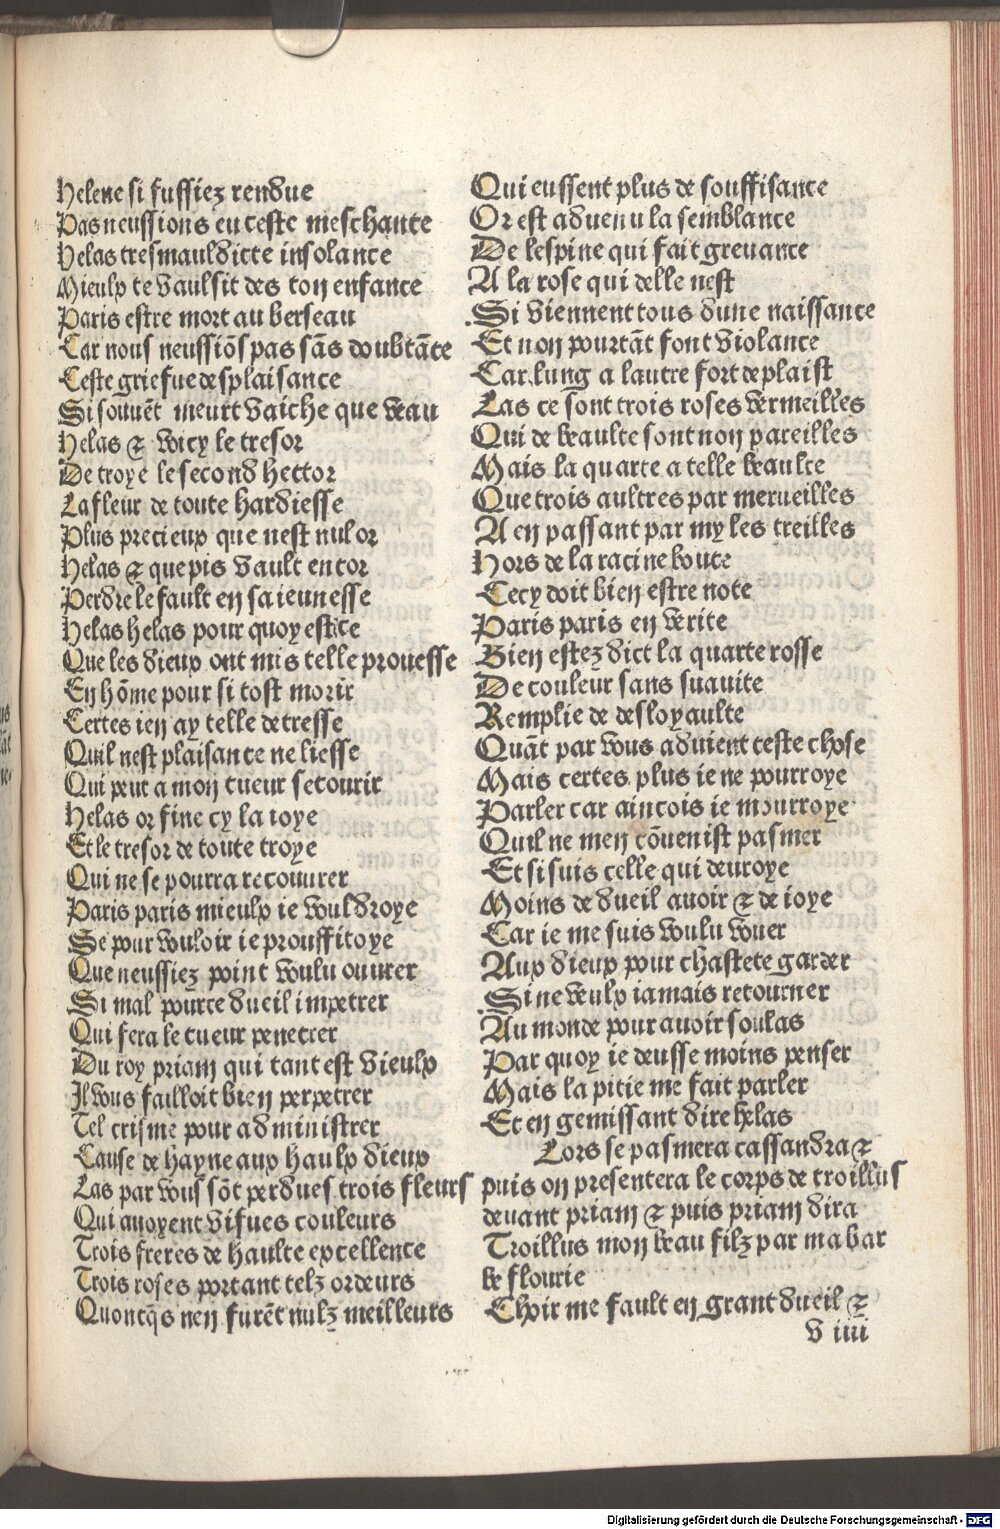 Helene si fussiez rendue
Pas neussions eu ceste meschante
Helas tresmauldicte insolance
Mieulx te vaulsit des ton enfance
Paris estre mort au berseau
Car nous neussiõs pas sãs doubtãce
Ceste griefue desplaisance
Si souuẽt meurt vaiche que veau
Helas & voicy le tresor
De troye le second hector
La fleur de toute hardiesse
Plus precieux que nest nul or
Helas & que pis vault encor
Perdre le fault en sa ieunesse
Helas helas pour quoy est ce
Que les dieux ont mis telle prouesse
En hõme pour si tost morir
Certes ien ay telle detresse
Quil nest plaisance ne liesse
Qui peut a mon cueur secourir
Helas or fine cy la ioye
Et le tresor de toute troye
Qui ne se pourra recouurer
Paris paris mieulx ie vouldroye
Se pour vouloir ie prouffitoye
Que neussiez point voulu ouurer
Si mal pource dueil impetrer
Qui fera le cueur penetrer
Du roy priam qui tant est vieulx
Il vous failloit bien perpetrer
Tel crisme pour administrer
Cause de hayne aux haulx dieux
Las par vous sõt perdues trois fleurs
Qui auoyent vifues couleurs
Trois freres de haulte excellence
Trois roses portant telz ordeurs
Quoncq̃s nen furẽt nulz meilleurs
Qui eussent plus de souffisance
Or est aduenu la semblance
De lespine qui fait greuance
A la rose qui delle nest
Si viennent tous dune naissance
Et non pourtãt font violance
Car lung a lautre fort deplaist
Las ce sont trois roses vermeilles
Qui de beaulte sont non pareilles
Mais la quarte a telle beaulte
Que trois aultres par merueilles
A en passant par my les treilles
Hors de la racine boute
Cecy doit bien estre note
Paris paris en verite
Bien estez dict la quarte rosse
De couleur sans suauite
Remplie de desloyaulte
Quãt par vous aduient ceste chose
Mais certes plus ie ne pourroye
Parler car aincois ie mourroye
Quil ne men cõuenist pasmer
Et si suis celle qui deuroye
Moins de dueil auoir & de ioye
Car ie me suis voulu vouer
Aux dieux pour chastete garder
Si ne veulx iamais retourner
Au monde pour auoir soulas
Par quoy ie deusse moins penser
Mais la pitie me fait parler
Et en gemissant dire helas
Lors se pasmera cassandra &
puis on presentera le corps de troillus
deuant priam & puis priam dira
Troillus mon beau filz par ma bar
be flourie
Choir me fault en grant dueil &
v iiii
Digitalisierung gefördert durch die Deutsche Forschungsgemeinschaft - DFG